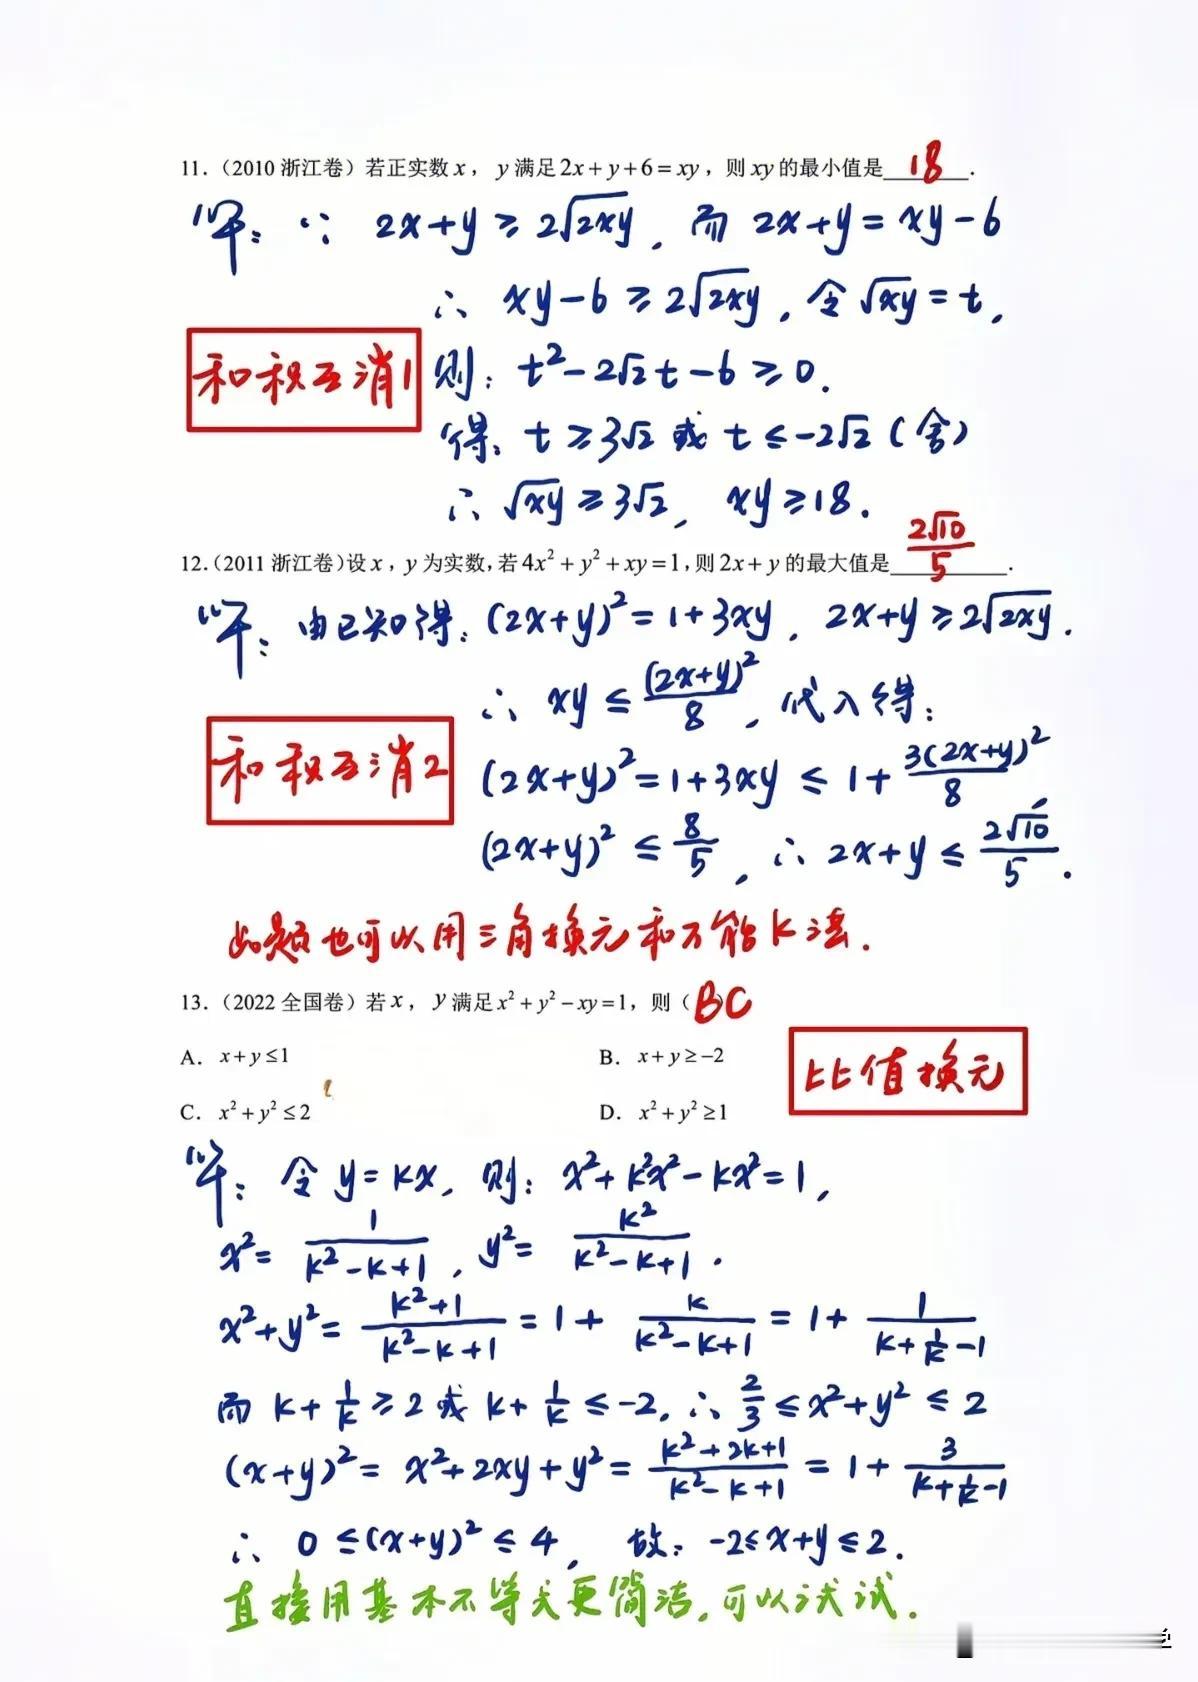 11.（2010 浙江卷）若正实数x，y满足2x+y+6=xy，则xy的最小值是 18 .
解：∵ 2x+y≥2√(2xy)，而 2x+y=xy-6
∴ xy-6≥2√(2xy)，令√(xy)=t，
和积互消1
则：t²-2√2t-6≥0.
得：t≥3√2 或 t≤-2√2（舍）
∴√(xy)≥3√2，xy≥18.
12.（2011 浙江卷）设x，y为实数，若4x²+y²+xy=1，则2x+y的最大值是 2√10/5 .
解：由已知得：(2x+y)²=1+3xy，2x+y≥2√(2xy).
∴ xy≤(2x+y)²/8，代入得：
和积互消2
(2x+y)²=1+3xy≤1+3(2x+y)²/8
(2x+y)²≤8/5，∴2x+y≤2√10/5.
此题也可以用三角换元和万能k法.
13.（2022 全国卷）若x，y满足x²+y²-xy=1，则（BC
A. x+y≤1
B. x+y≥-2
比值换元
C. x²+y²≤2
D. x²+y²≥1
解：令y=kx，则：x²+k²x²-kx²=1，
x²=1/(k²-k+1)，y²=k²/(k²-k+1).
x²+y²=(k²+1)/(k²-k+1)=1+k/(k²-k+1)=1+1/(k+1/k-1)
而k+1/k≥2或k+1/k≤-2，∴2/3≤x²+y²≤2
(x+y)²=x²+2xy+y²=(k²+2k+1)/(k²-k+1)=1+3/(k+1/k-1)
∴ 0≤(x+y)²≤4，故：-2≤x+y≤2.
直接用基本不等式更简洁，可以试试.